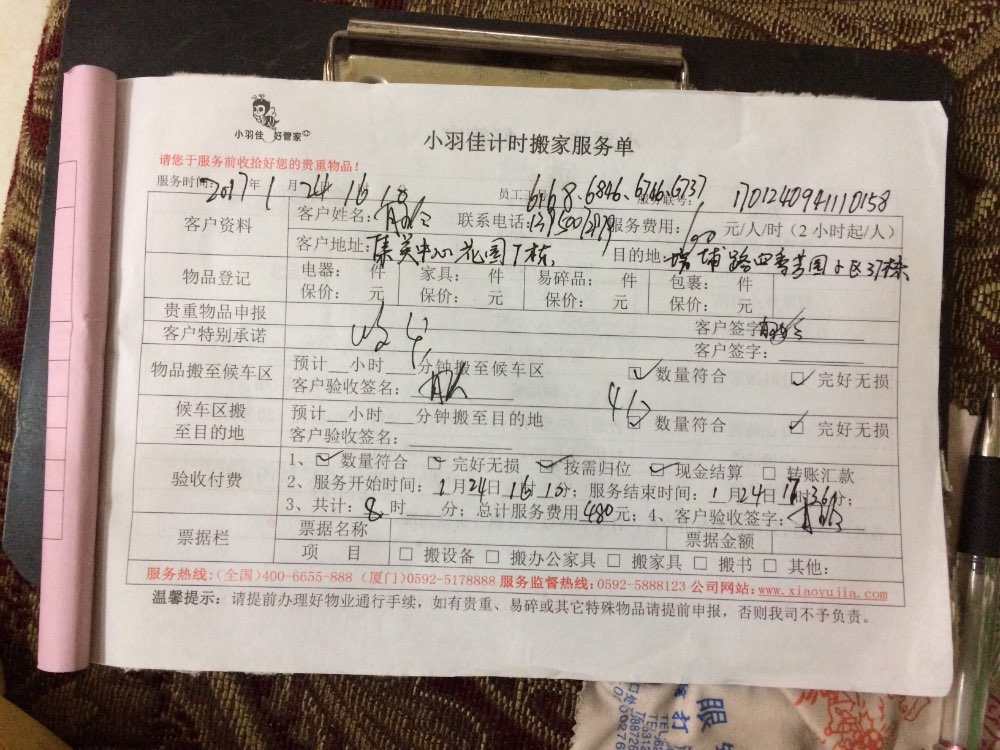 小羽佳 好管家
小羽佳计时搬家服务单
请您于服务前收拾好您的贵重物品！
服务时间: 2017年 1月 24 16 18 员工工号 6168、6846、6746、6737 服务联号: 1701240941110158
客户资料 客户姓名: 联系电话: 服务费用: 元/人/时（2 小时起/人）
客户地址: 集美中心花园7栋 目的地: 埔路四季芳园小区37栋
物品登记 电器: 件 家具: 件 易碎品: 件 包裹: 件
保价: 元 保价: 元 保价: 元 保价: 元
贵重物品申报 客户签字:
客户特别承诺 客户签字:
物品搬至候车区 预计__小时___分钟搬至候车区 ☑ 数量符合 ☑ 完好无损
客户验收签名:
候车区搬至目的地 预计__小时___分钟搬至目的地 ☑ 数量符合 ☑ 完好无损
客户验收签名:
验收付费 1、☑ 数量符合 ☑ 完好无损 ☑ 按需归位 ☑ 现金结算 □ 转账汇款
2、服务开始时间: 1月24日16时10分；服务结束时间: 1月24日17时36分；
3、共计: 8时___分；总计服务费用480元；4、客户验收签字:
票据栏 票据名称 票据金额
项 目 □ 搬设备 □ 搬办公家具 □ 搬家具 □ 搬书 □ 其他:
服务热线:(全国)400-6655-888 (厦门)0592-5178888 服务监督热线:0592-5888123 公司网站:www.xiaoyujia.com
温馨提示: 请提前办理好物业通行手续，如有贵重、易碎或其它特殊物品请提前申报，否则我司不予负责。
眼
打